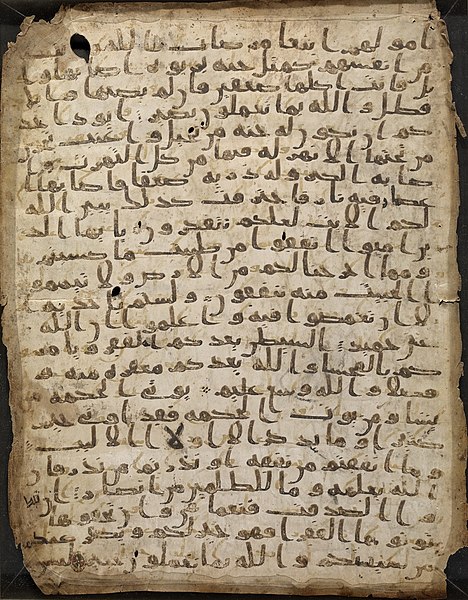 امولهم ابتغا مرضات الله و
من انفسهم كمثل جنه بربوه اصابها وا
بل فاتت اكلها ضعفين فان لم يصبها وا
فطل والله بما تعملون بصير ايود احد
كم ان تكون له جنه من نخيل واعنب
من تحتها الانهر له فيها من كل الثمرت وا
صابه الكبر وله ذريه ضعفا فاصابها ا
عصار فيه نار فاحترقت كذلك يبين الله
لكم الايت لعلكم تتفكرون يايها الذ
ين امنوا انفقوا من طيبت ما كسبتم
ومما اخرجنا لكم من الارض ولا تيمموا
الخبيث منه تنفقون ولستم باخذيه ا
لا ان تغمضوا فيه واعلموا ان الله
غني حميد الشيطن يعدكم الفقر ويامر
كم بالفحشا والله يعدكم مغفره منه و
فضلا والله وسع عليم يوتي الحكمه من
يشا ومن يوت الحكمه فقد اوتي خيرا
كثيرا وما يذكر الا اولوا الالبب
وما انفقتم من نفقه او نذرتم من نذر فان
الله يعلمه وما للظلمين من انصار ان تبد
وا الصدقت فنعما هي وان تخفوها و
توتوها الفقرا فهو خير لكم ويكفر عنكم
من سيتكم والله بما تعملون خبير ليس